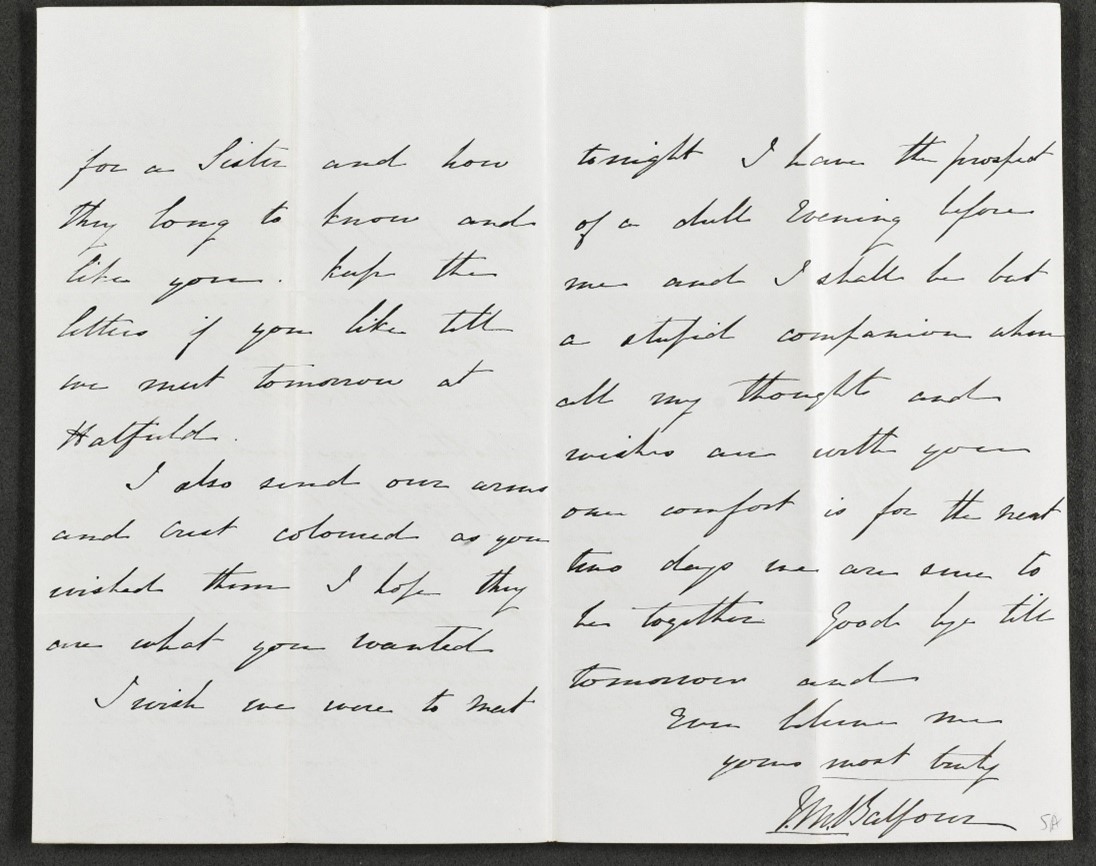 for a Sister and how
they long to know and
like you. Keep the
letters if you like till
we meet tomorrow at
Hatfield.
I also send our arms
and Crest coloured as you
wished them I hope they
are what you wanted
I wish we were to meet
tonight I have the prospect
of a dull Evening before
me and I shall be but
a stupid companion when
all my thoughts and
wishes are with you
one comfort is for the next
two days we are sure to
be together Good bye till
tomorrow and
Ever believe me
yours most truly
J.M.Balfour
5A